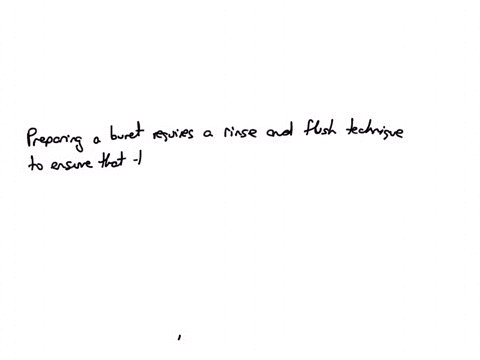 Preparing a buret requires a rinse and flush technique
to ensure that